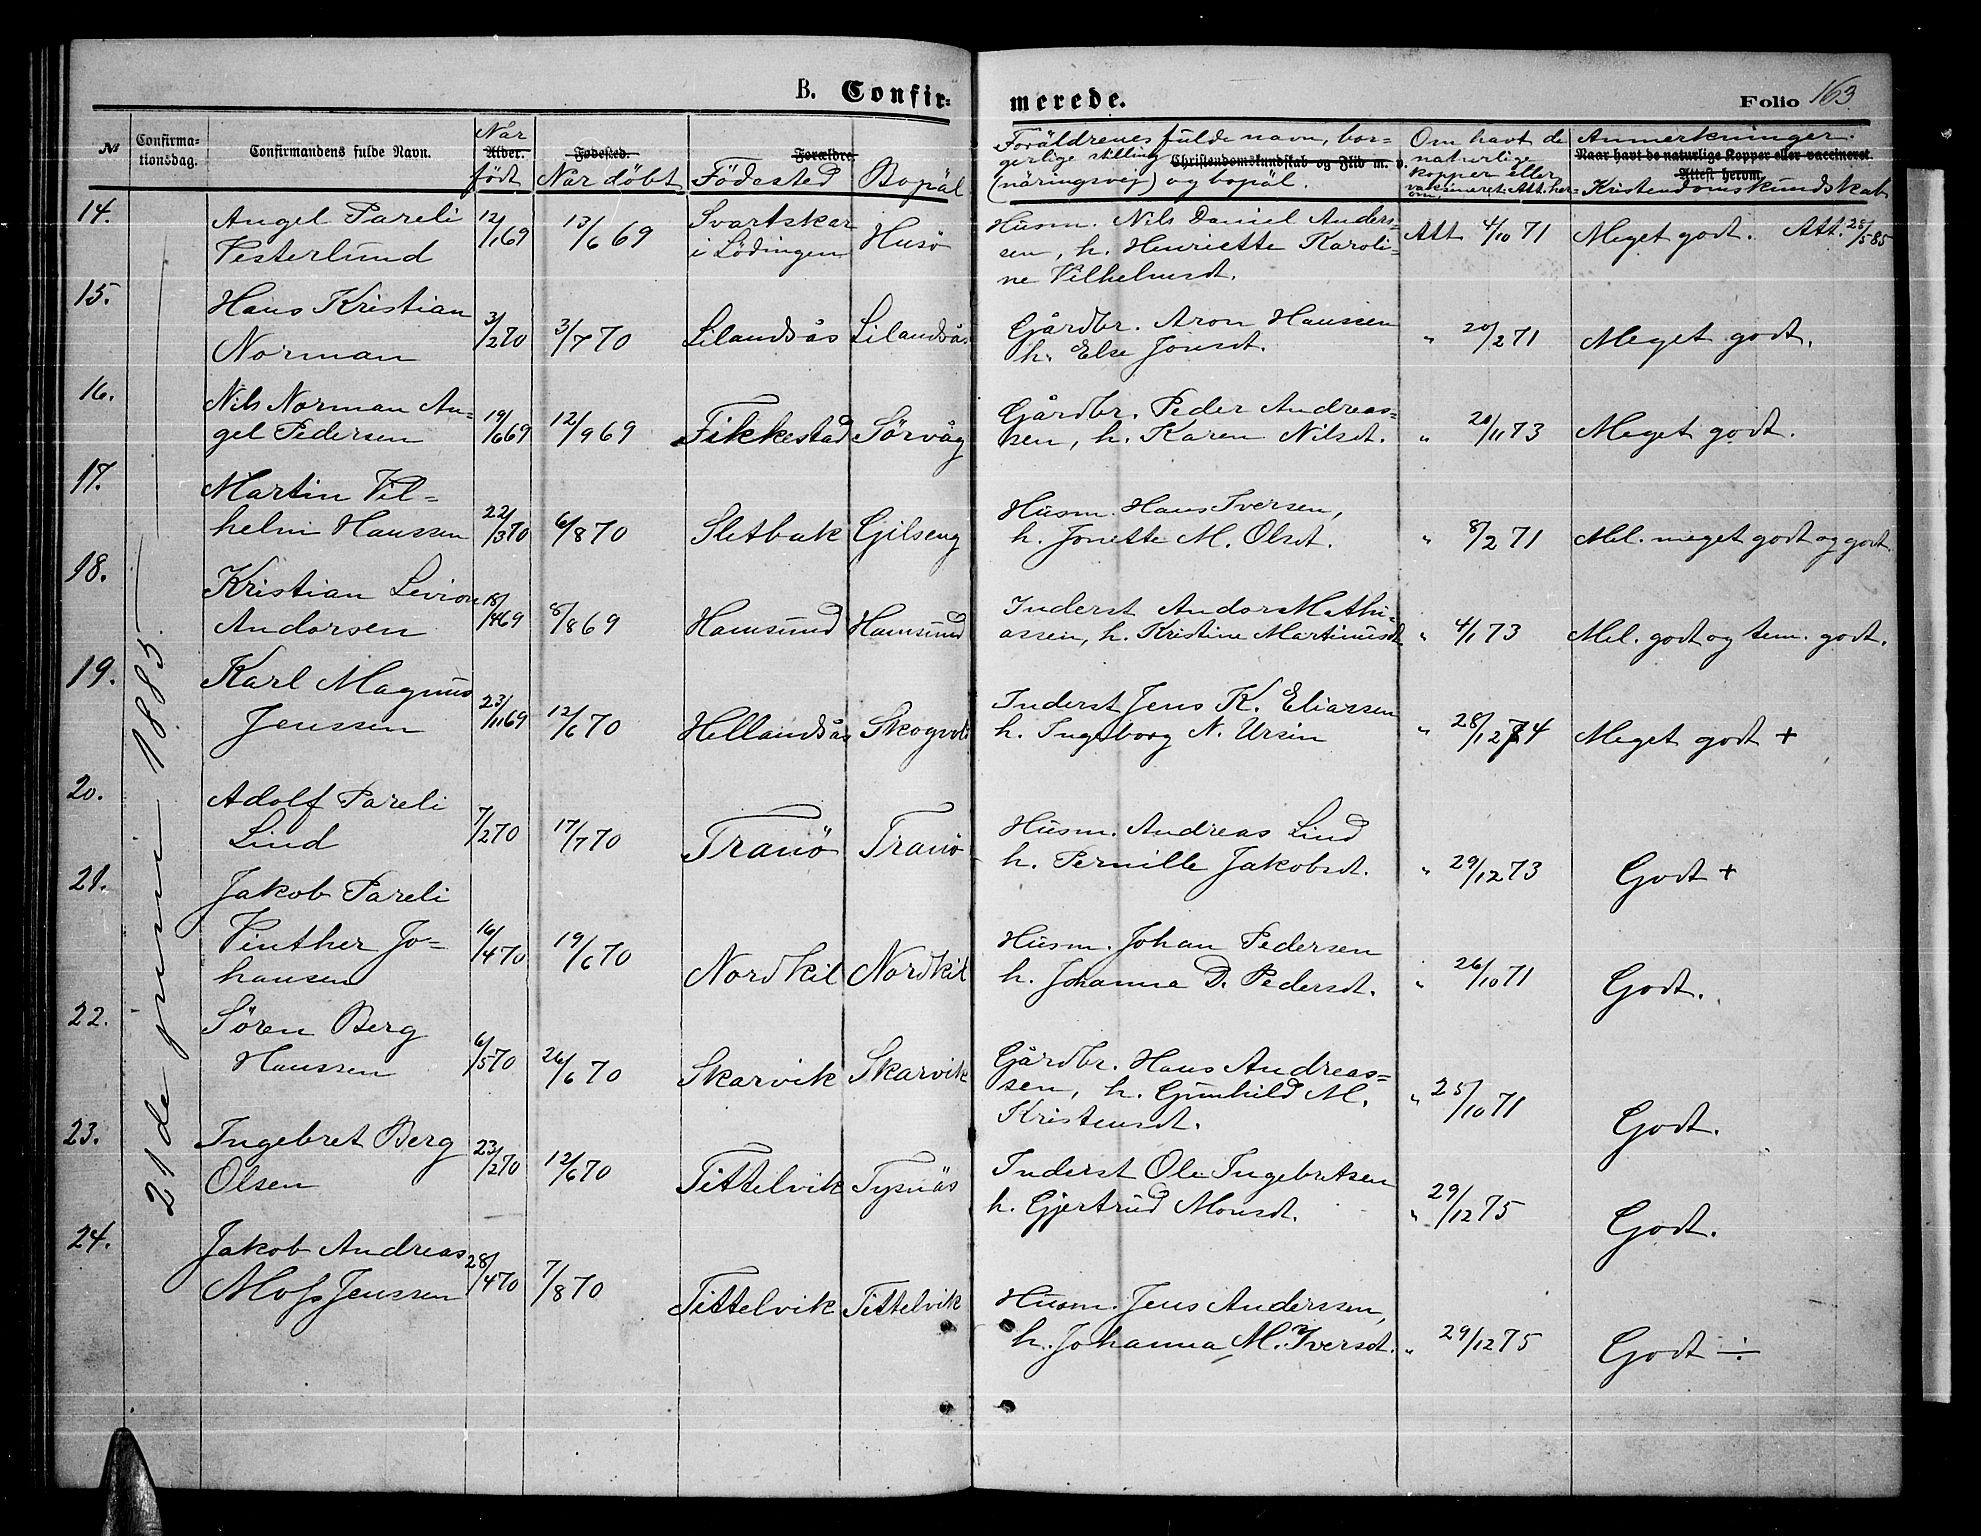 B. Confir- merede. Folio 163
№ Confirma-tionsdag. Confirmandens fulde Navn. Alder. Når född Fødested. Når döbt Forældre Födested Bopäl
Foräldrenes fulde navn, bor-
gerlige stilling Christendomskundskab og Flid m. v.
(näringsvej) og bopäl.
Om havt de
naturlige
kopper eller
vaksineret. Att. her-
om.
Anmerkninger.
Naar havt de naturlige Kopper eller vaccineret.
Attest herom.
Kristendomskundskab
21de juni 1885.
14. Angel Pareli 12/1 69 13/6 69 Svartskar Husö Husm. Nils Daniel Anders- Att 4/10 71 Meget godt. Att. 25/5 85
Vesterlund i Lödingen sen, h. Henriette Karoli-
ne Vilhelmsdt.
15. Hans Kristian 3/2 70 3/7 70 Lilandsås Lilandsås Gårdbr. Aron Hanssen " 20/2 71 Meget godt.
Norman h. Else Jonsdt.
16. Nils Norman An- 19/6 69 12/9 69 Fikkestad Sörvåg Gårdbr. Peder Andreas- " 20/11 73 Meget godt.
gel Pedersen sen, h. Karen Nilsdt.
17. Martin Vil- 22/3 70 6/8 70 Sletbak Gilseng Husm. Hans Iversen, " 8/2 71 Mel. meget godt og godt.
helm Hanssen h. Jonette M. Olsdt.
18. Kristian Levion 8/8 69 Hamsund Hamsund Inderst Andor Mathi- " 4/1 73 Mel. godt og tem. godt.
Andorsen assen, h. Kristine Martinusdt
19. Karl Magnus 23/11 69 12/6 70 Hellandsås Skogvold Inderst Jens K. Eliassen " 28/12 74 Meget godt +
Jenssen h. Ingeborg N. Ursin
20. Adolf Pareli 7/2 70 17/7 70 Tranö Tranö Husm. Andreas Lind " 29/12 73 Godt +
Lind h. Pernille Jakobsdt.
21. Jakob Pareli 16/4 70 19/6 70 Nordkil Nordkil Husm. Johan Pedersen " 26/10 71 Godt.
Vinther Jo- h. Johanna D. Pedersdt.
hansen
22. Sören Berg 6/5 70 26/6 70 Skarvik Skarvik Gårdbr. Hans Andreas- " 25/10 71 Godt.
Hanssen sen, h. Gunhild M.
Kristensdt.
23. Ingebret Berg 23/2 70 12/6 70 Tittelvik Tysnäs Inderst Ole Ingebretsen " 29/12 75 Godt.
Olsen h. Gjertrud Monsdt.
24. Jakob Andreas 28/4 70 7/8 70 Tittelvik Tittelvik Husm. Jens Anderssen, " 29/12 75 Godt ÷
Moss Jenssen h. Johanna M. Iversdt.